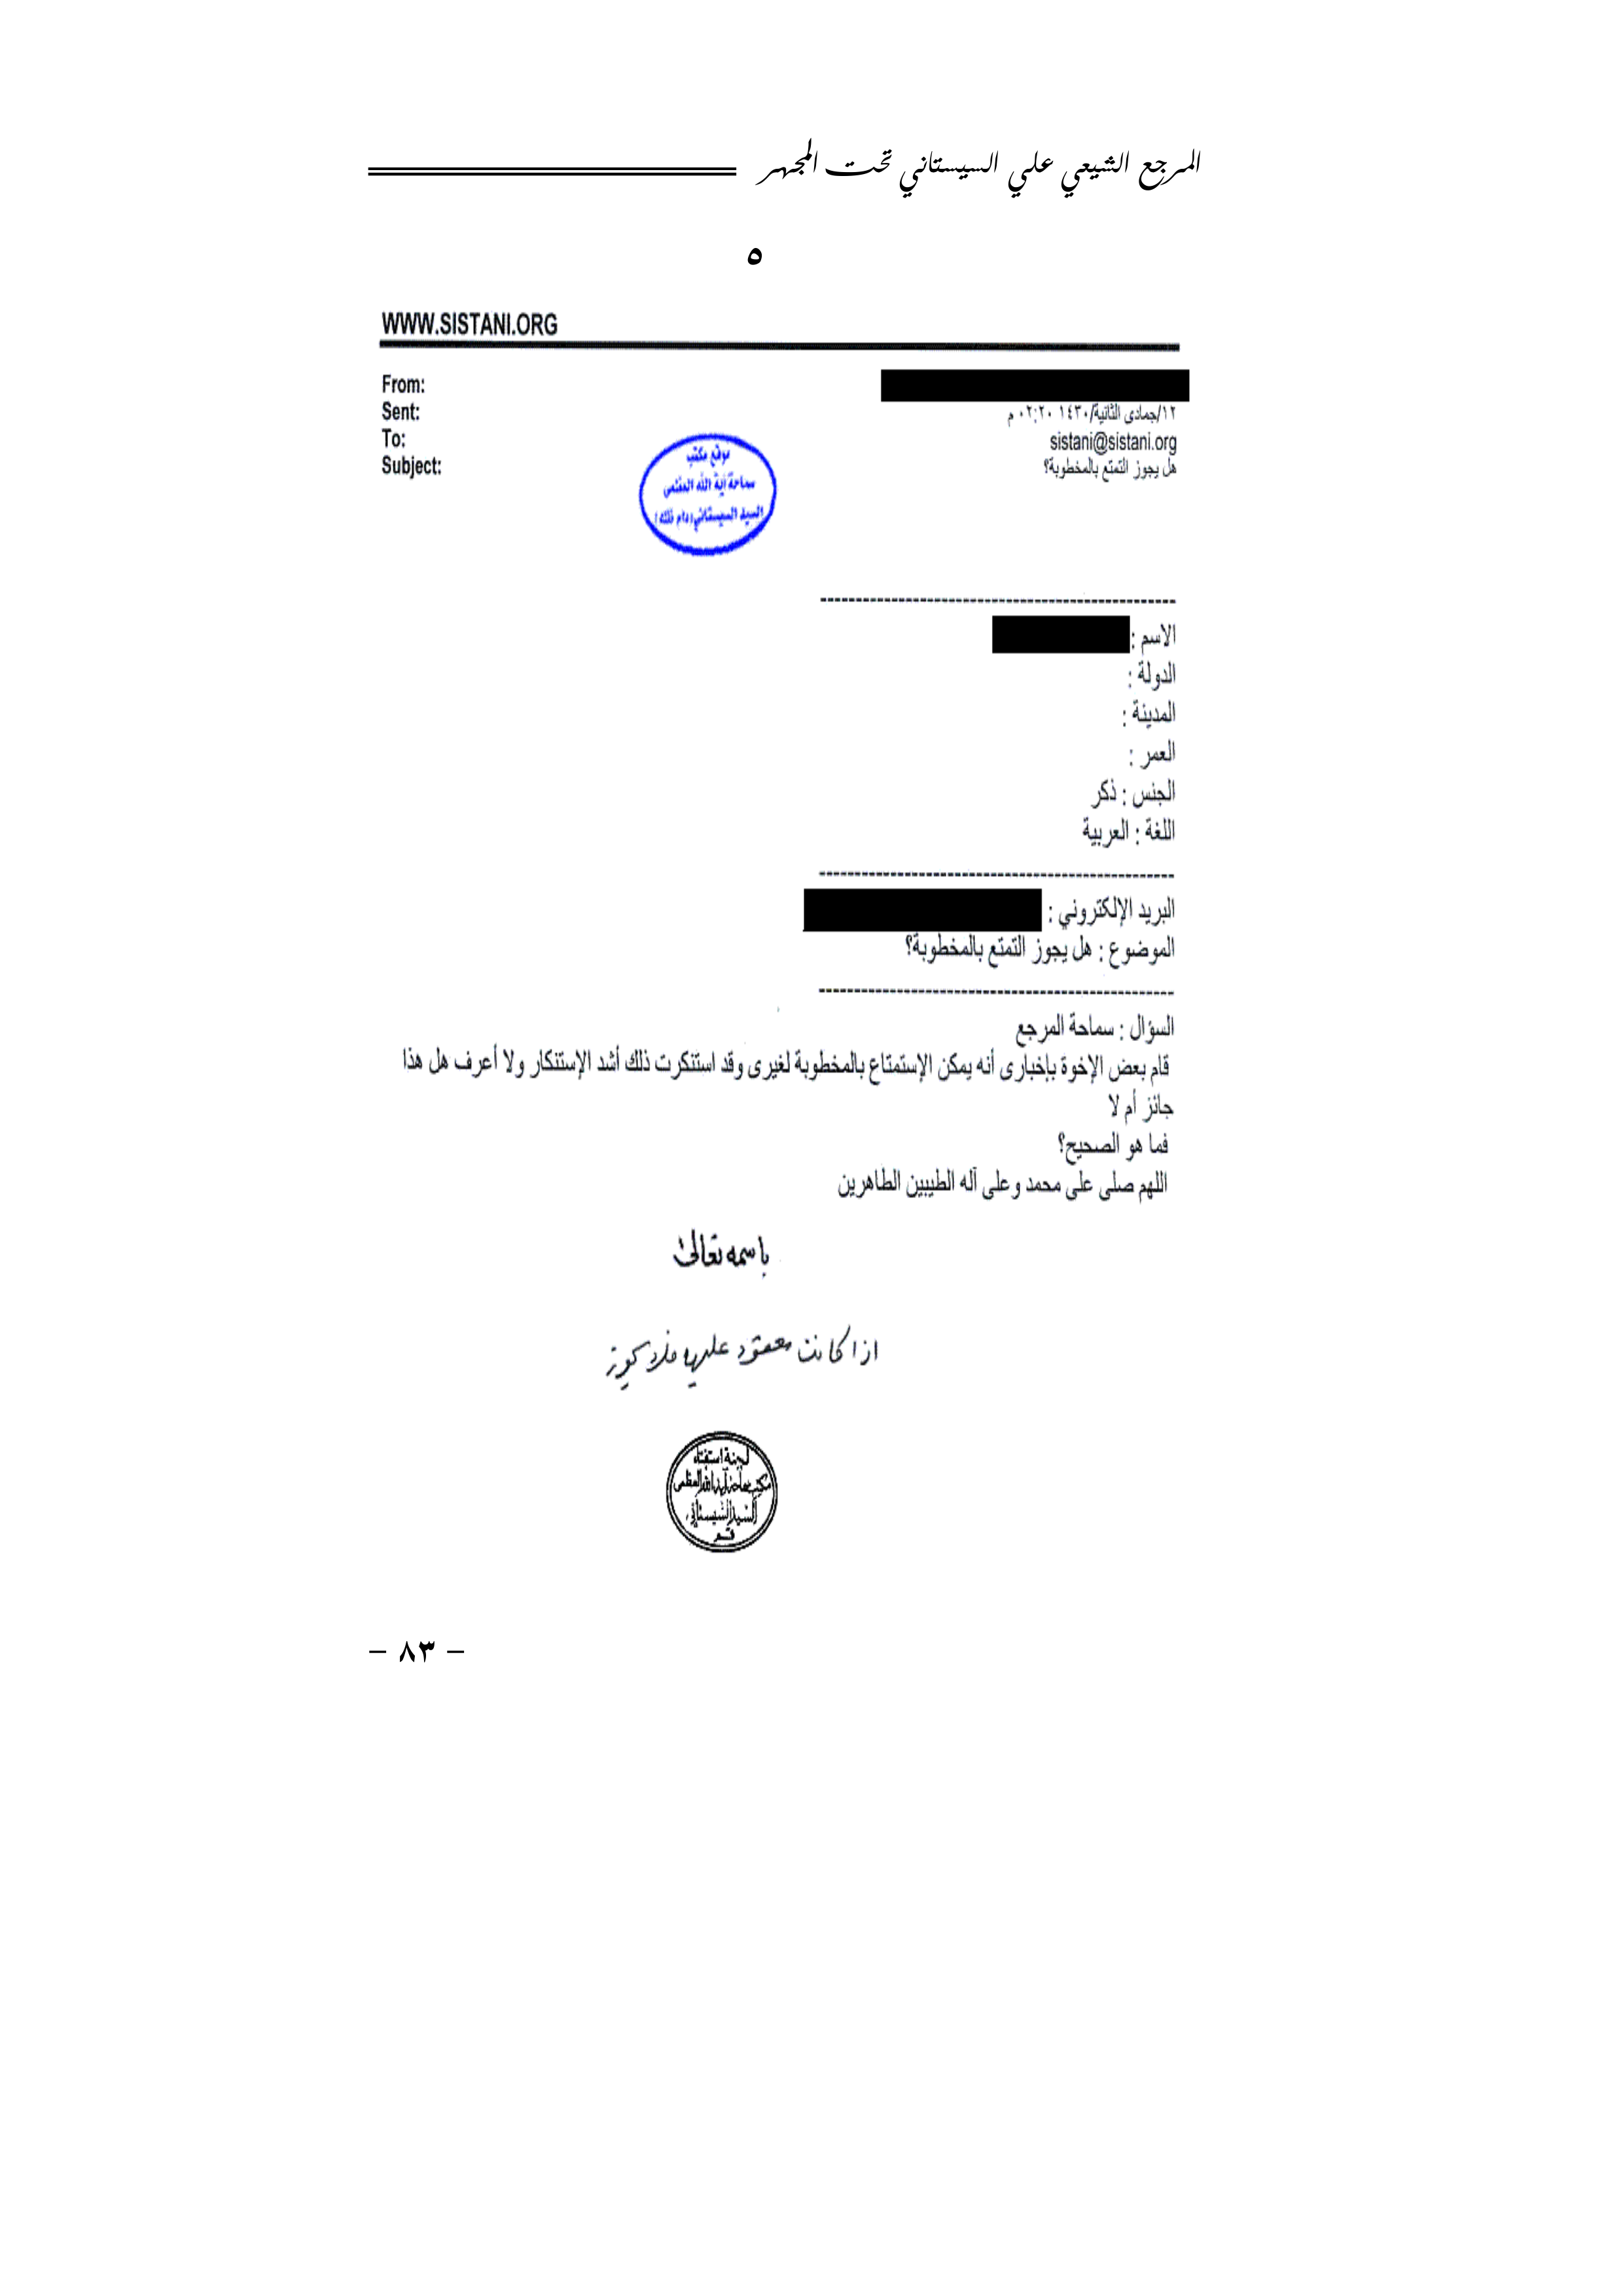 المرجع الشيعي علي السيستاني تحت المجهر
٥
WWW.SISTANI.ORG
From:
Sent: ١٢/جمادى الثانية/١٤٣٠ ٠٢:٢٠ م
To: sistani@sistani.org
Subject: هل يجوز التمتع بالمخطوبة؟
موقع مكتب
سماحة آية الله العظمى
السيد السيستاني (دام ظله)
الاسم :
الدولة :
المدينة :
العمر :
الجنس : ذكر
اللغة : العربية
البريد الإلكتروني :
الموضوع : هل يجوز التمتع بالمخطوبة؟
السؤال : سماحة المرجع
قام بعض الإخوة بإخبارى أنه يمكن الإستمتاع بالمخطوبة لغيرى وقد استنكرت ذلك أشد الإستنكار ولا أعرف هل هذا
جائز أم لا
فما هو الصحيح؟
اللهم صلى على محمد وعلى آله الطيبين الطاهرين
باسمه تعالى
اذا كانت معقود عليها فلا يجوز
لجنة استفتاء
مكتب سماحة آية الله العظمى
السيد السيستاني
قم
- ٨٣ -